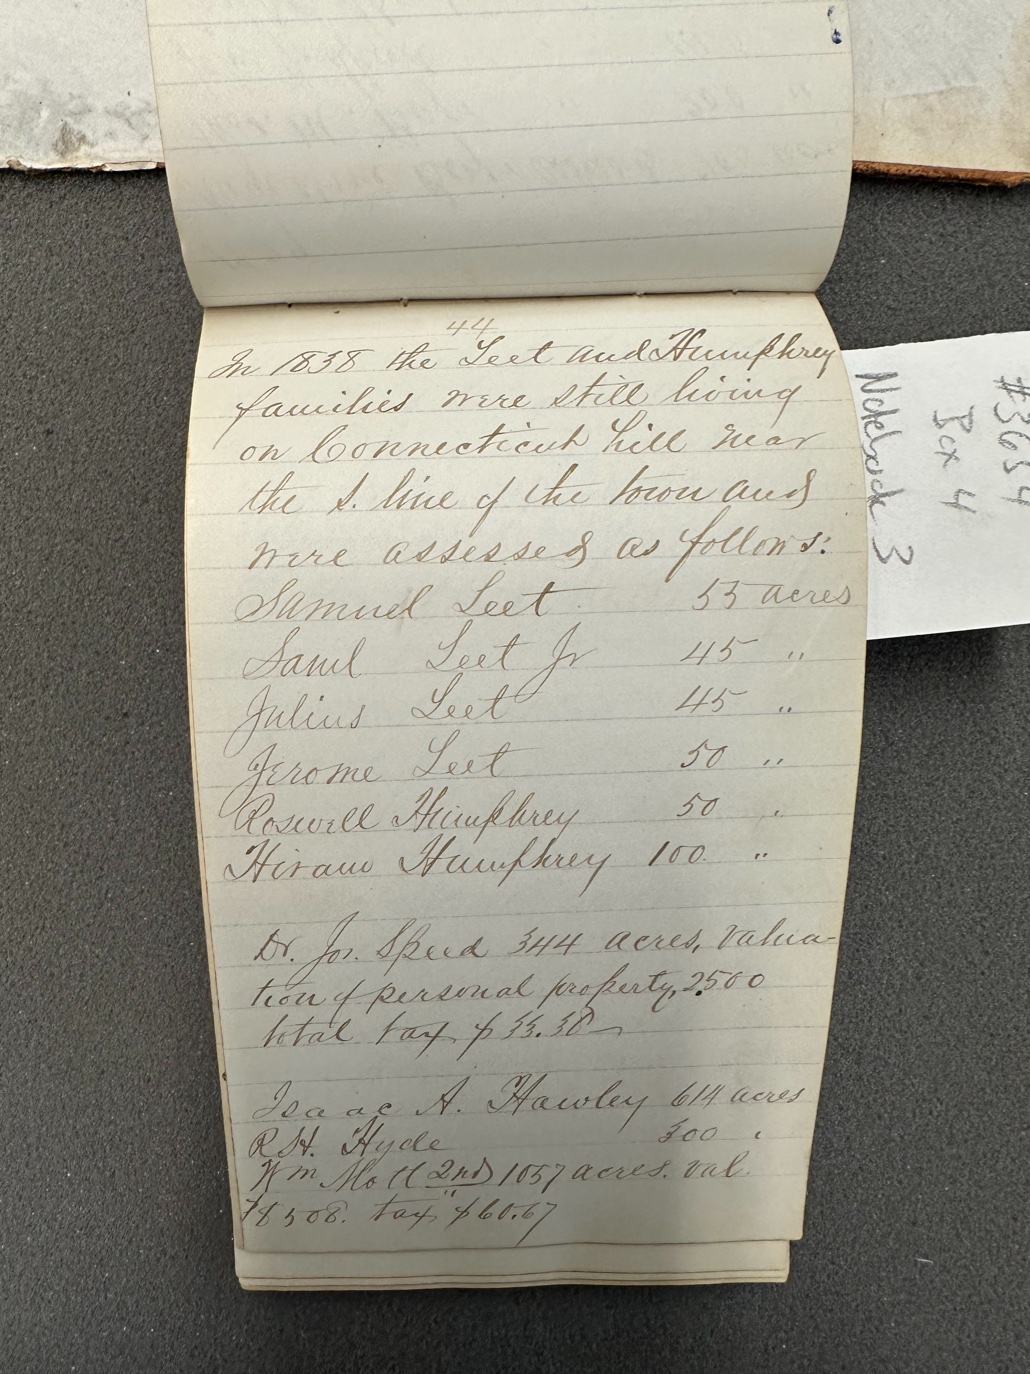 44
In 1838 the Leet and Humphrey
families were still living
on Connecticut hill near
the S. line of the town and
were assessed as follows:
Samuel Leet 55 acres
Saml Leet Jr 45 "
Julius Leet 45 "
Jerome Leet 50 "
Roswell Humphrey 50 "
Hiram Humphrey 100 "
Dr. Jos. Speed 344 acres, valua-
tion of personal property, 2500
total tax $33.38
Isaac A. Hawley 614 acres
R.H. Hyde 300 "
Wm Mott (2nd) 1057 acres. val.
$8508. tax $60.67
#3654
Box 4
Notebook 3